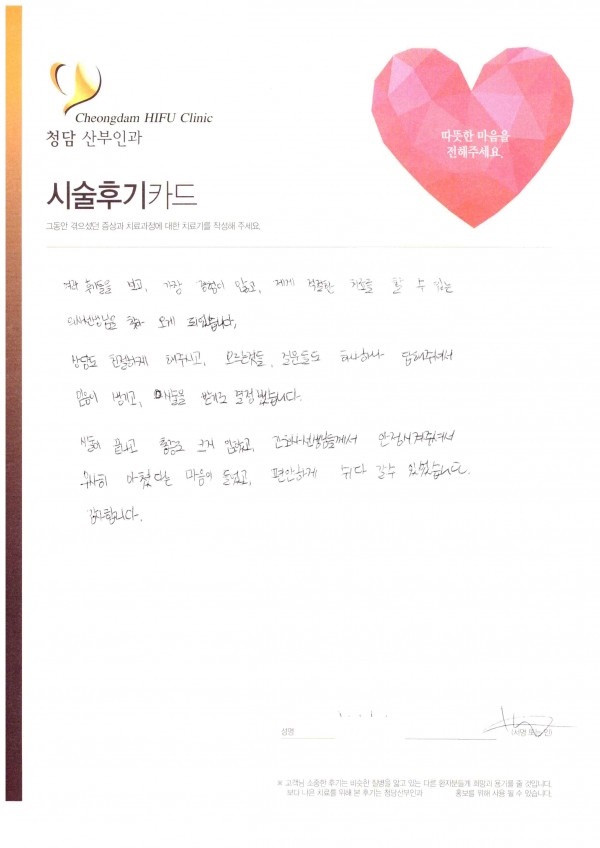 Cheongdam HIFU Clinic
청담 산부인과
따뜻한 마음을
전해주세요.
시술후기카드
그동안 겪으셨던 증상과 치료과정에 대한 치료기를 작성해 주세요.
후기들을 보고, 가장 경험이 많고, 제게 적절한 치료를 할 수 있는
의사선생님을 찾아 오게 되었습니다.
상담도 친절하게 해주시고, 모르는것들, 질문들도 하나하나 답해주셔서
믿음이 생기고, 시술을 받기로 결정했습니다.
시술이 끝나고 통증도 크게 없었고, 간호사선생님들께서 안정시켜주셔서
무사히 마쳤다는 마음이 들었고, 편안하게 쉬다 갈수 있었습니다.
감사합니다.
성명
(서명 또는 인)
※ 고객님 소중한 후기는 비슷한 질병을 앓고 있는 다른 환자분들께 희망과 용기를 줄 것입니다.
보다 나은 치료를 위해 본 후기는 청담산부인과 홍보를 위해 사용 될 수 있습니다.